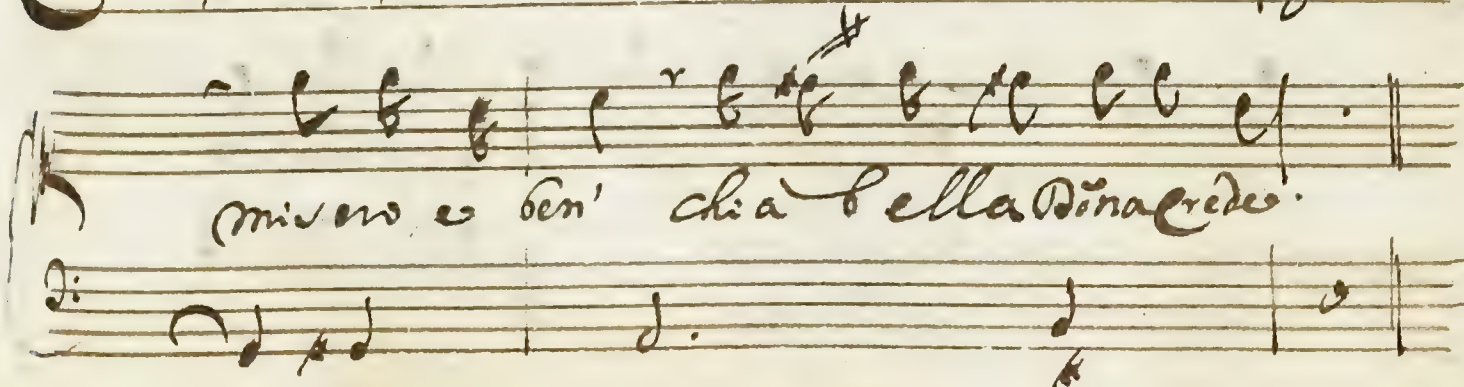 misero e ben' chi a bella Dona crede.